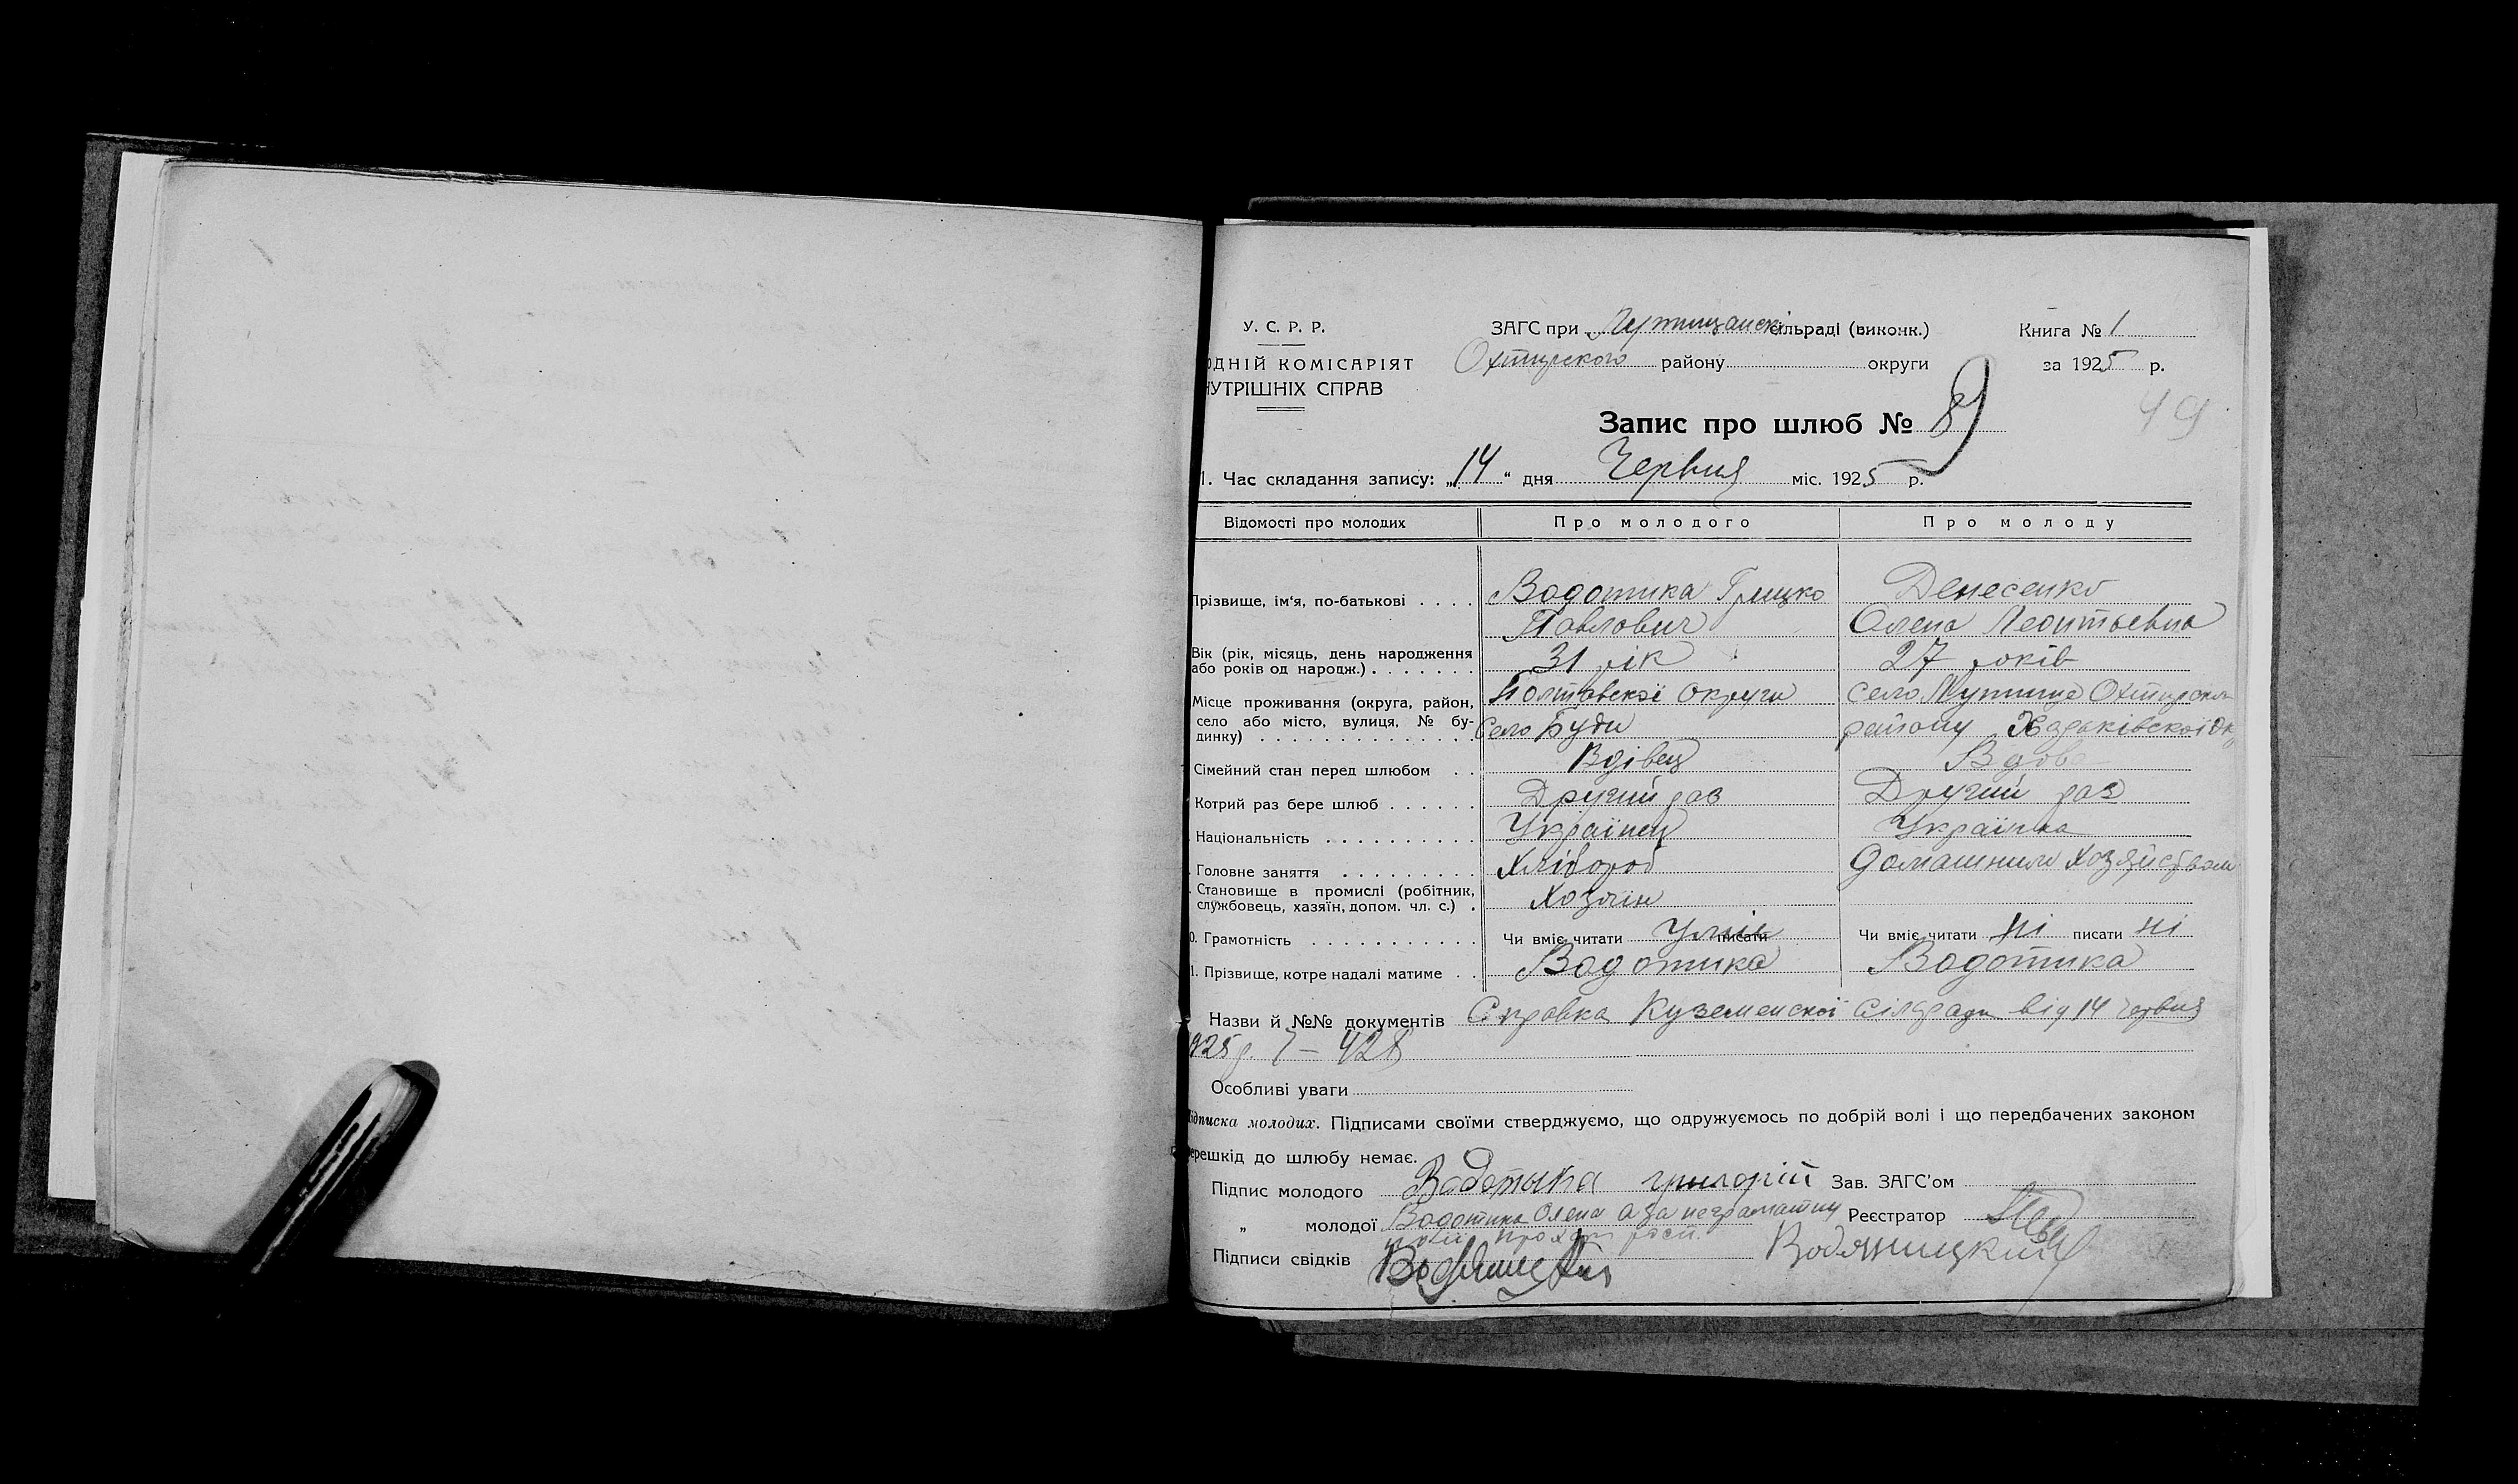 У. С. Р. Р.
ОДНІЙ КОМІСАРІЯТ
НУТРІШНІХ СПРАВ
ЗАГС при сільраді (виконк.)
Охтирского району округи
Книга № 1
за 1925 р.
49
Запис про шлюб № 8
1. Час складання запису: „14“ дня Червня міс. 1925 р.
Відомості про молодих Про молодого Про молоду
Прізвище, ім'я, по-батькові Водотика Грицко Денесенко
Павлович Олена Леонтьевна
Вік (рік, місяць, день народження
або років од народж.) 31 рік 27 років
Місце проживання (округа, район, Полтавскої Округи село Охтирског
село або місто, вулиця, № бу- Село Буди району Харьківскої Ок
динку)
Сімейний стан перед шлюбом Вдівец Вдова
Котрий раз бере шлюб Другий раз Другий раз
Національність Українец Українка
Головне заняття Хлібороб Домашним Хозяйством
Становище в промислі (робітник,
службовець, хазяїн, допом. чл. с.) Хозяін
0. Грамотність Чи вміє читати Уміє писати Чи вміє читати Ні писати Ні
1. Прізвище, котре надалі матиме Водотика Водотика
Назви й №№ документів Справка Куземенскої Сілради від 14 червня
1925 р. 428
Особливі уваги
ідписка молодих. Підписами своїми стверджуємо, що одружуємось по добрій волі і що передбачених законом
ерешкід до шлюбу немає.
Підпис молодого Водотыка григорій Зав. ЗАГС'ом
„ молодої Водотика Олена а за неграматну Реєстратор
Підписи свідків Водяницкий